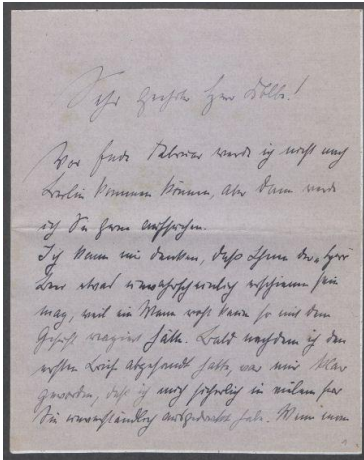 Sehr geehrter Herr Kolbe!
Vor Ende Februar werde ich nicht nach
Berlin kommen können, aber dann werde
ich Sie gerne aufsuchen.
Ich kann mir denken, daß Ihnen der
etwas unwahrscheinlich erschienen sein
mag, weil ein Mann wohl kaum so mit dem
Gefühl reagiert hätte. Bald nachdem ich den
ersten Brief abgesandt hatte, war mir klar
geworden, daß ich mich sicherlich in vielem für
Sie unverständlich ausgedrückt habe. Wenn man